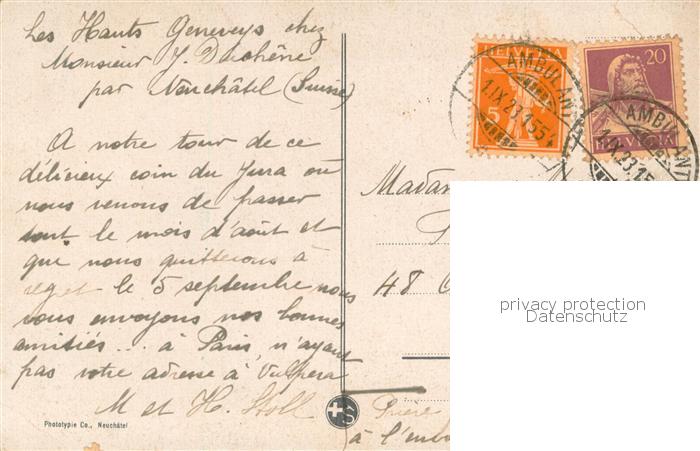 Les Hauts Geneveys chez
Monsieur J. Duchêne
par Neuchâtel (Suisse)
A notre tour de ce
délicieux coin du Jura où
nous venons de passer
tout le mois d'août et
que nous quitterons à
regret le 5 septembre nous
vous envoyons nos bonnes
amitiés... à Paris, n'ayant
pas votre adresse à Vulpera
M et H. Stoll
Phototypie Co., Neuchâtel
HELVETIA
5
20
AMBULANT
1.IX.23.15
AMBULANT
1.IX.23.15
Madam
48
Prière
à l'en
privacy protection
Datenschutz